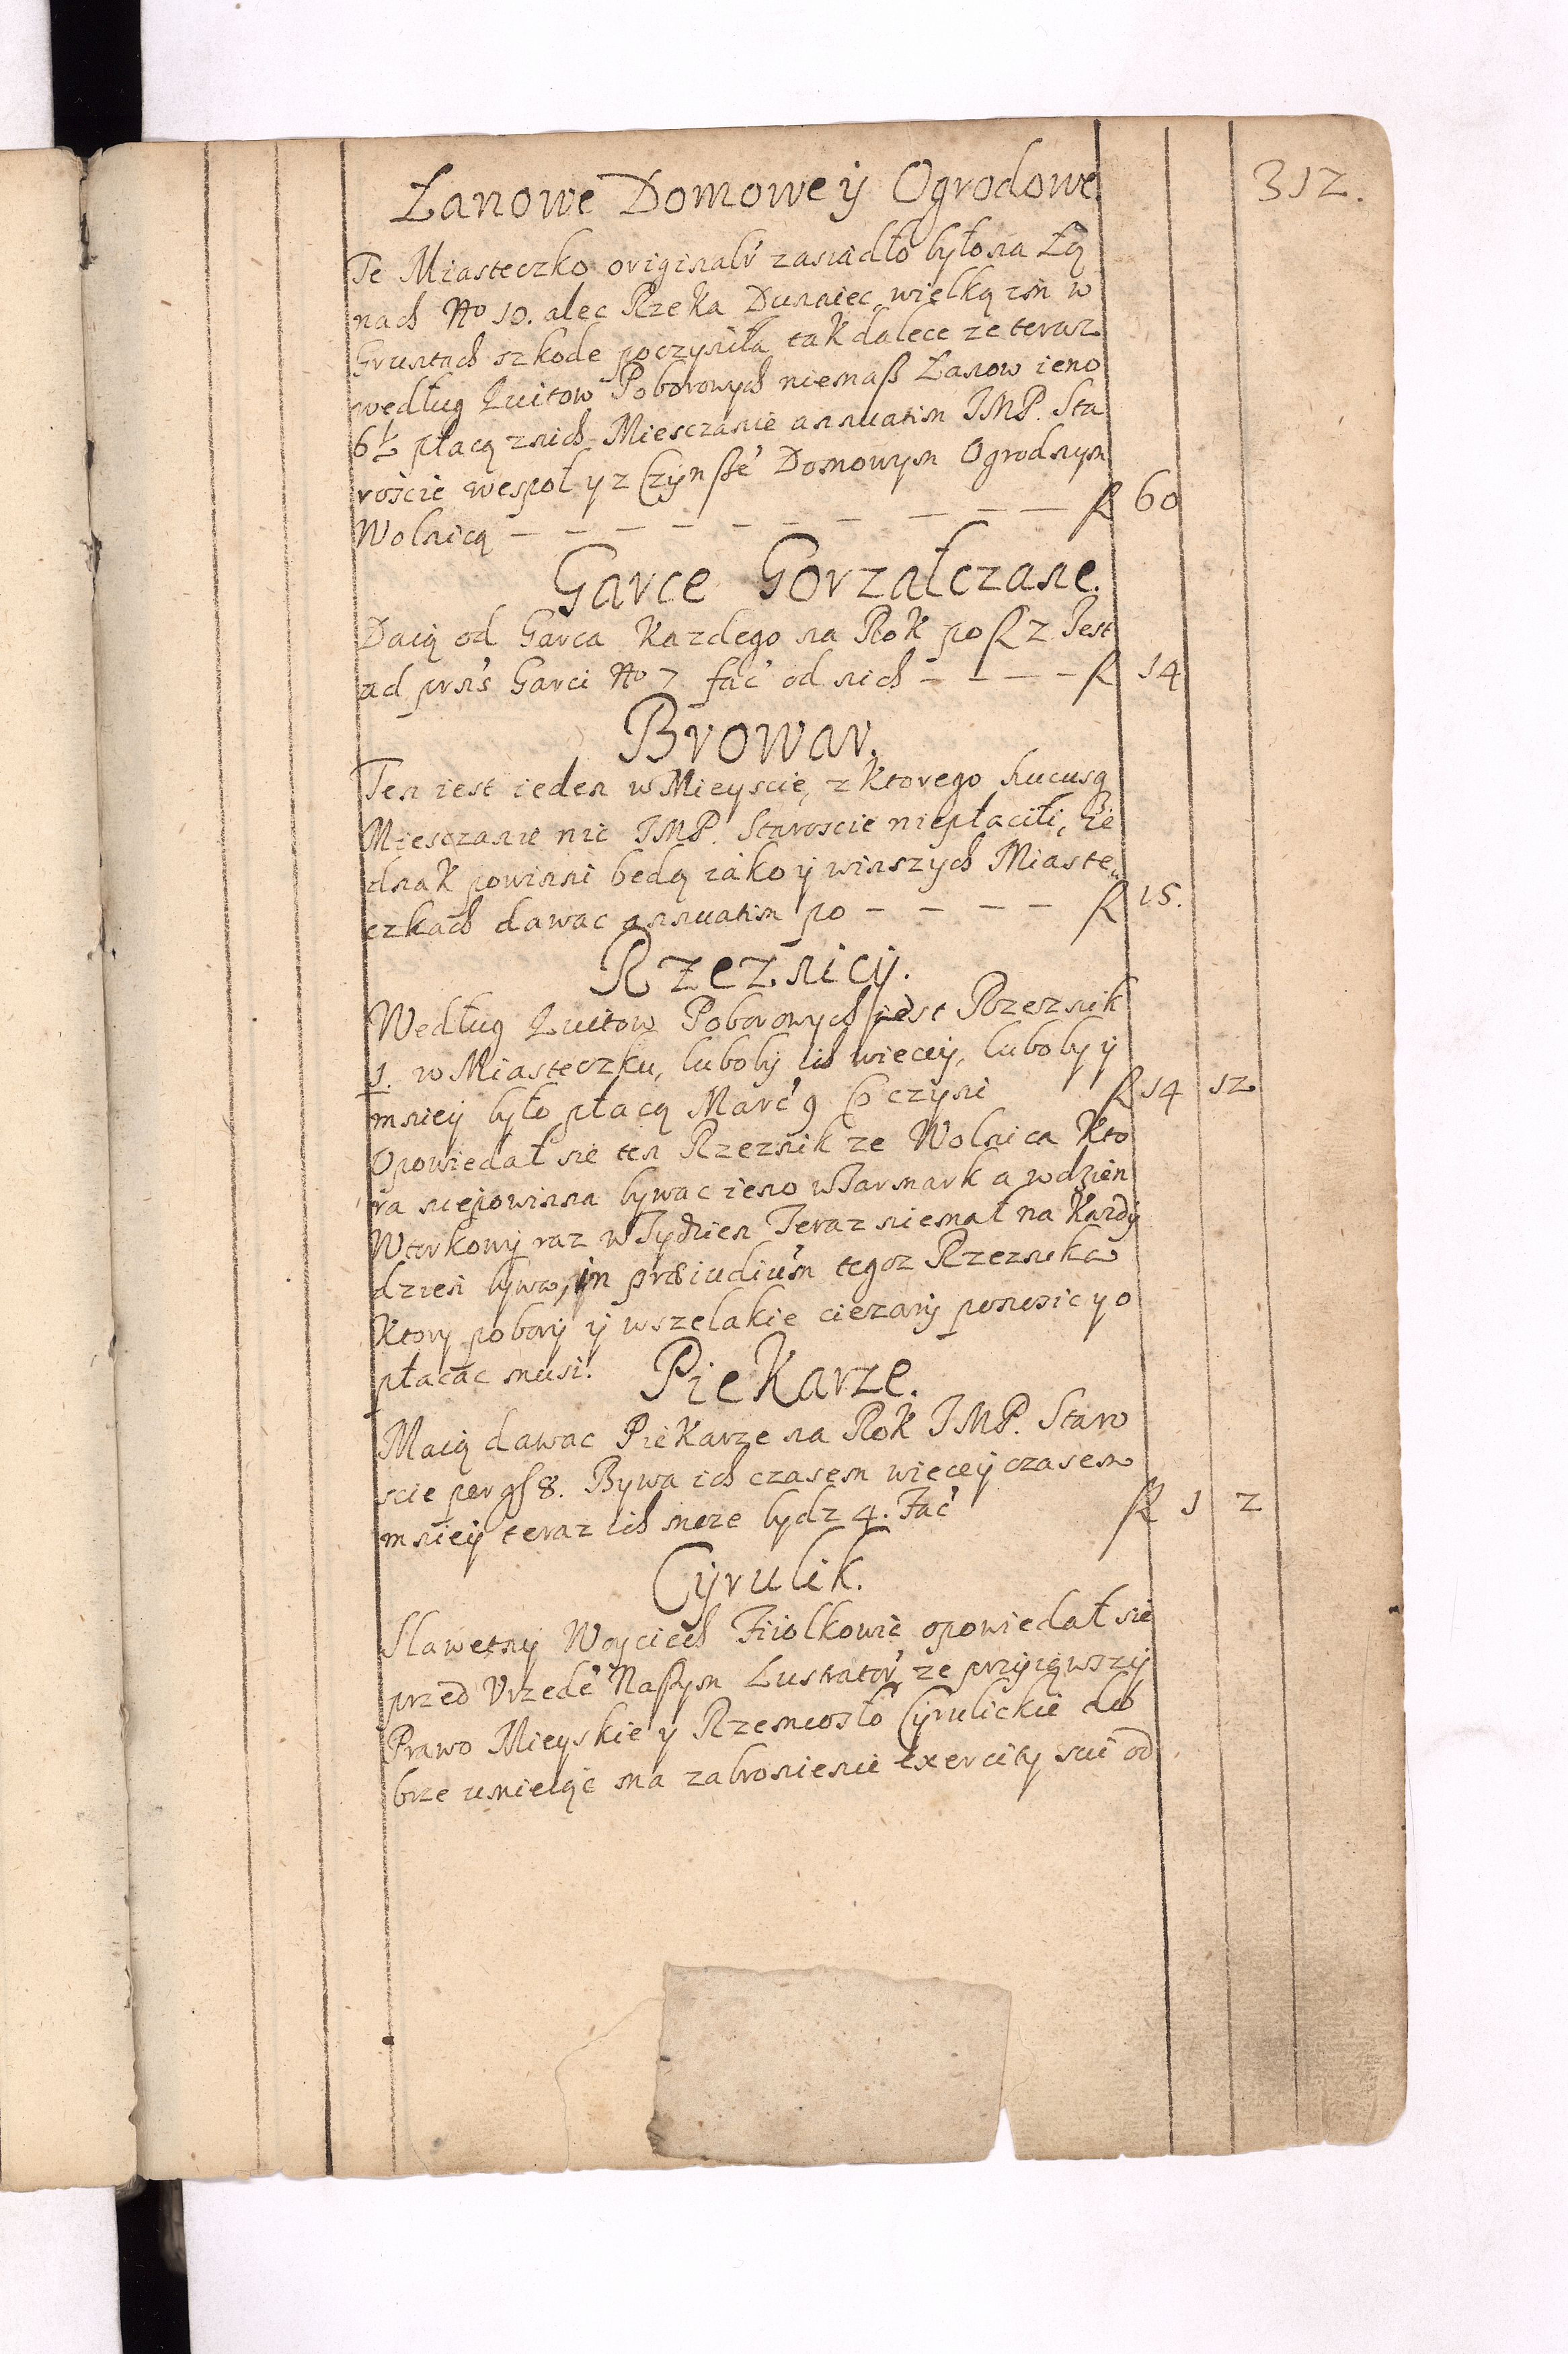 312.
Łanowe Domowe ÿ Ogrodowe.
Te Miasteczko originalr zasiadło było na Łą
nach Nº 10. alec Rzeka Dunaiec wielką im w
Gruntach szkode poczyniła tak dalece ze teraz
według Quitow Poborowych niemaß Łanow ieno
6½ płacą znich Miesczanie annuatim JMP. Sta
roscie wespoł y z Czÿnßē Domowym Ogrodnym
Wolnicą – – – – – – – – – – – fl 60
Garce Gorzałczane.
Daią od Garca Kazdego na Rok po fl 2. Jest
ad prns Garci Nº 7 fac od nich – – – – fl 14
Browar.
Ten iest ieden w Mieyscie, z Ktorego hucusq
Miesczanie nic JMP. Staroscie niepłacili, ie
dnak powinni będą iako ÿ winszych Miaste
czkach dawac annuatim po – – – – fl 15.
Rzeznicÿ.
Według Quitow Poborowych iest Rzeznik
1. w Miasteczku, lubobÿ ich wiecey, luboby ÿ
mnieÿ było płacą Marc 9 co czyni fl 14 12
Opowiedał sie ten Rzeznik ze Wolnica Kto
ra niepowinna bywac ieno w Jarmark a w dzien
Wtorkowÿ raz w Tydzien Teraz niemal na Kazdÿ
dzien bywa, in præiudium tegoz Rzeznika
Ktory poborÿ ÿ wszelakie ciezarÿ ponosic y o
płacac musi.
Piekarze.
Maią dawac Piekarze na Rok JMP. Staro
scie per gſ 8. Bywa ich czasem wiecey czasem
mnieÿ teraz ich moze bydz 4. Fac fl 1 2
Cÿrulik.
Slawetnÿ Woyciech Fiiolkowic opowiedał sie
przed Vrzede Naßym Lustrator, ze przyiąwszÿ
Prawo Mieyskie y Rzemiosło Cyrulickie do
brze umieiąc ma zabronienie exercitÿ sui od